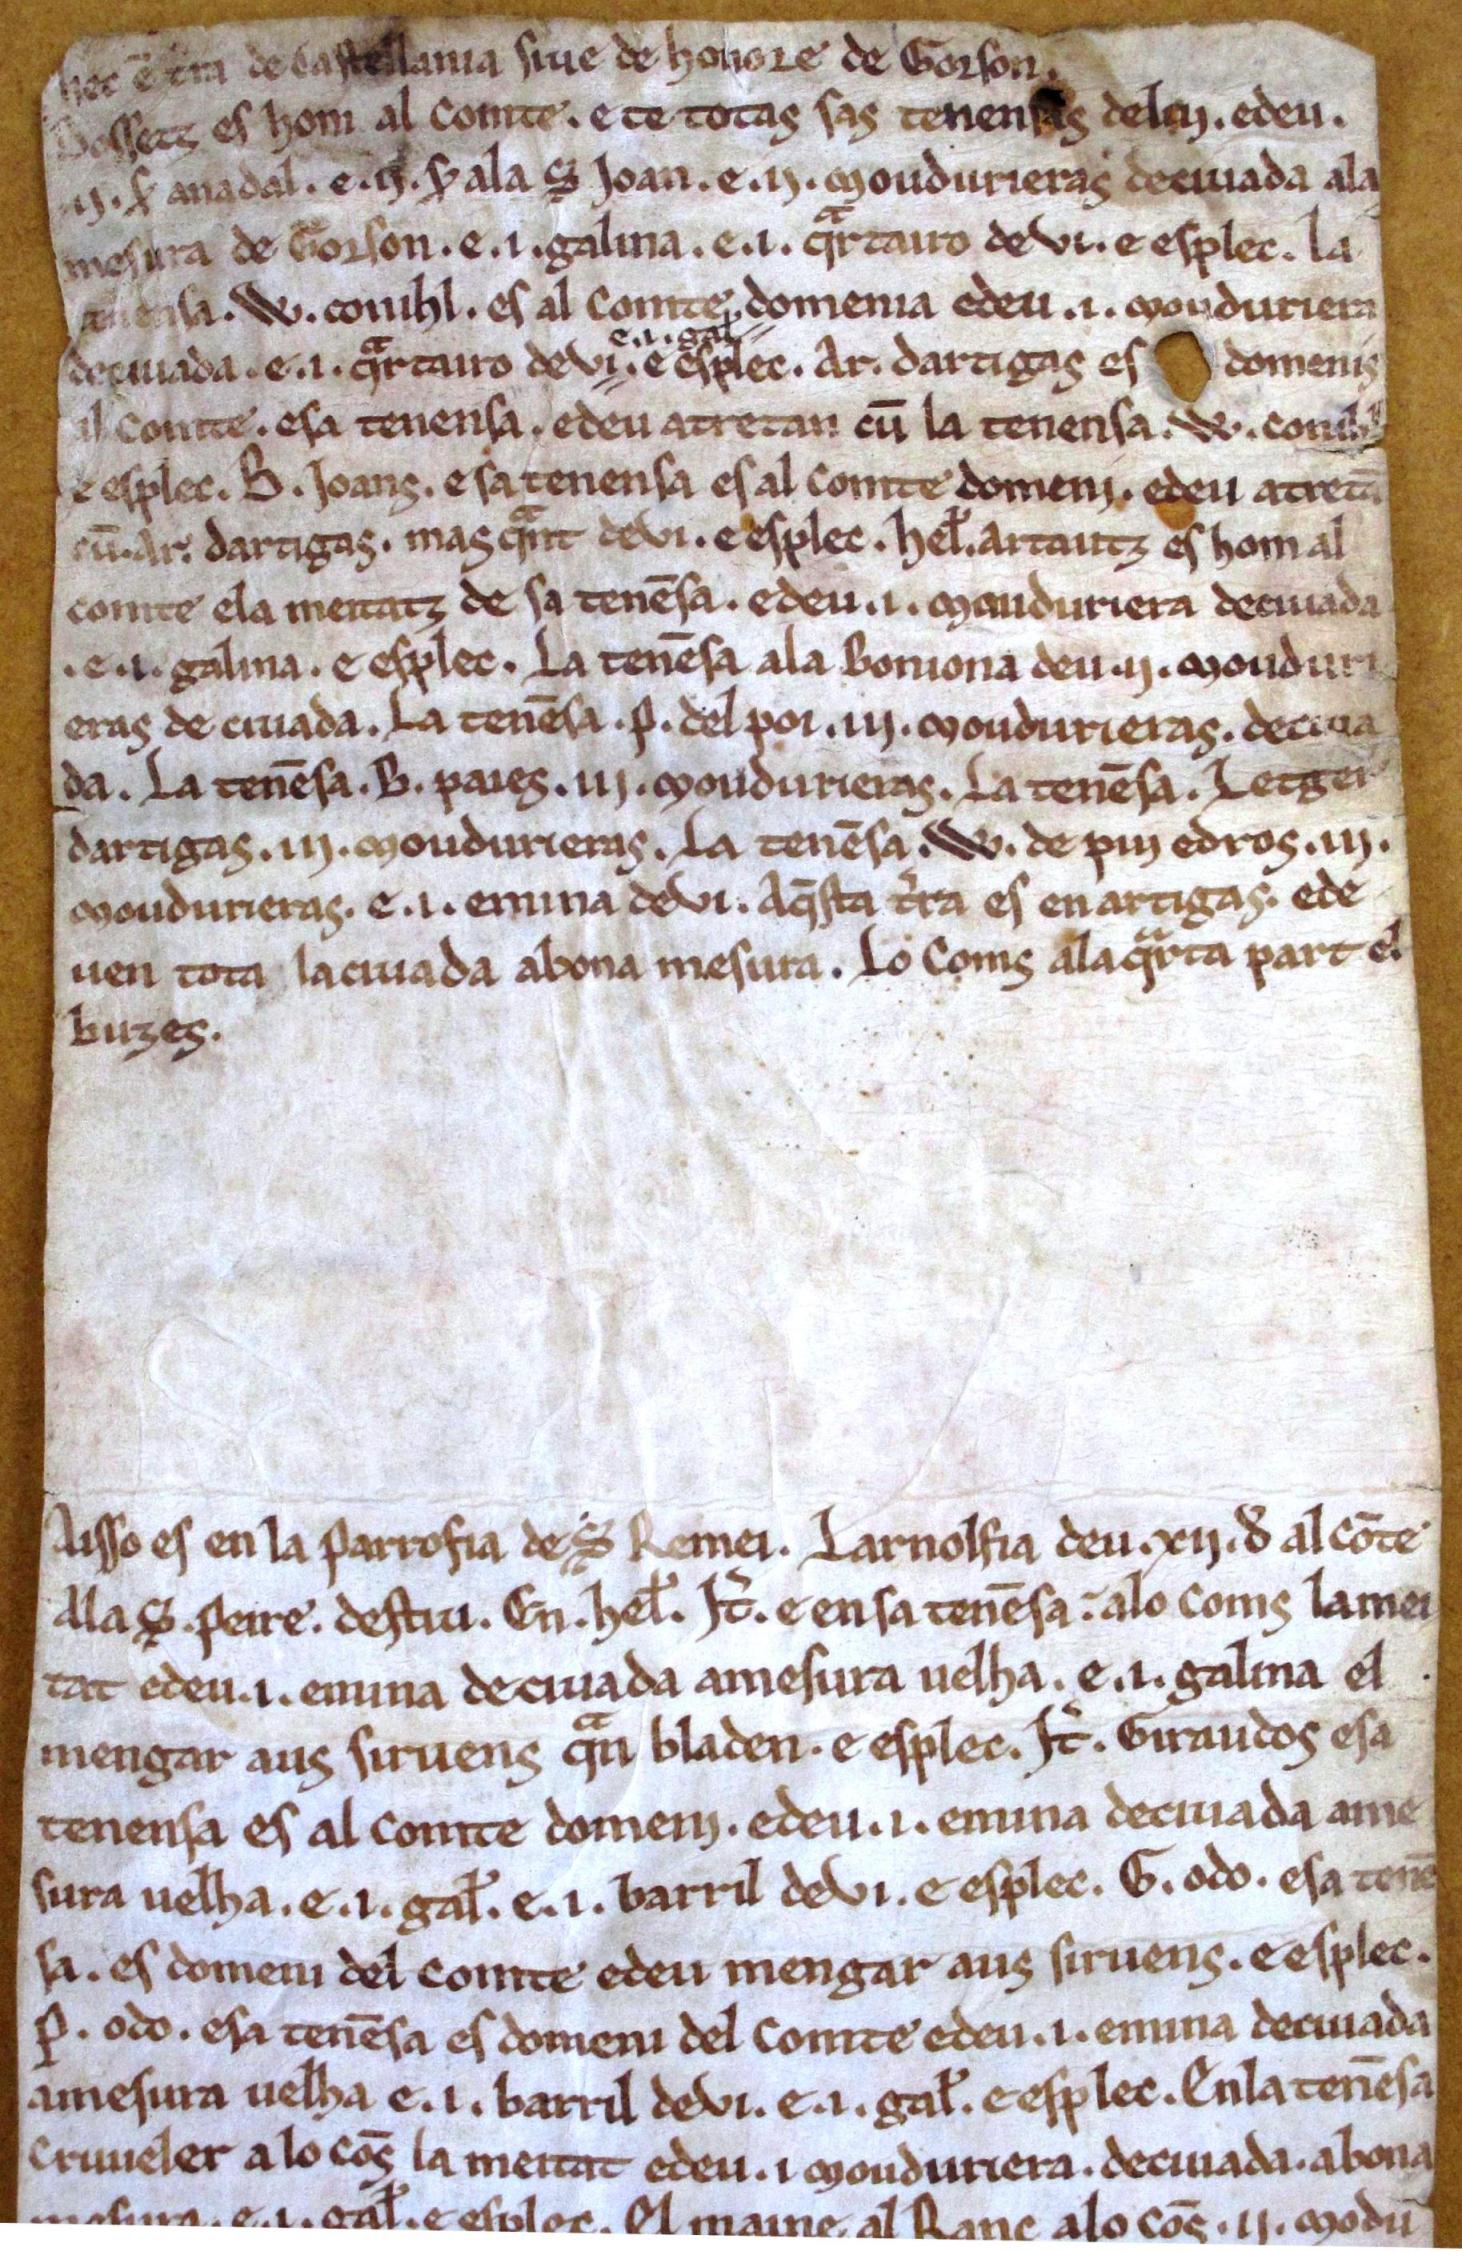 hec ē tra de castellania siue de honore de Gorson.
Dossetz es hom al comte. e te totas sas tenensas deluj. edeu.
.ij. ꝭ anadal. e .ij. ꝭ ala S Joan. e .ij. moudurieras deciuada ala
mesura de Gorson. e .i. galina. e .i. qᵃrtairo de vi. e esplec. la
tenensa. W. conihl. es al comte domenia edeu .i. mouduriera
e .i. gal̄
deciuada. e .i. qᵃrtairo de vi. e esplec. Ar. dartigas es domenis
al comte. esa tenensa. edeu atretan cū la tenensa. W. conihl
e esplec. B. Joans. esa tenensa es al comte domenj. edeu atretā
cū. Ar. dartigas. mas qᵃnt de vi. e esplec. hel̄. artautz es hom al
comte ela meitatz de sa tenēsa. edeu .i. mouduriera deciuada
.e .i. galina. e esplec. La tenēsa ala Boniona deu .ij. mouduri
eras de ciuada. La tenēsa. P. del poi .iij. moudurieras. deciua
da. La tenēsa. B. paies .iij. moudurieras. La tenēsa. Letger
dartigas .iij. moudurieras. La tenēsa. W. de pin edros .iij.
moudurieras. e .i. emina de vi. Aq̄sta t̄ra es en artigas. ede
uen tota laciuada abona mesura. Lo coms ala qᵃrta part el
buzes.
Aisso es en la parrofia de S Remei. Larnolfia deu .xij. đ al cōte
Ala S. Peire. destiu. En. hel̄. It̄. e en sa tenēsa: alo coms la mei
tat edeu .i. emina deciuada amesura uelha. e .i. galina el
mengar aus siruens qᵃn bladen. e esplec. It̄. Giraudos esa
tenensa es al comte domenj. edeu .i. emina deciuada ame
sura uelha. e .i. gal̄. e .i. barril de vi. e esplec. G. odo. esa tenē
sa. es domeni del comte edeu mengar aus siruens. e esplec.
P. odo. esa tenēsa es domeni del comte edeu .i. emina deciuada
amesura uelha e .i. barril de vi. e .i. gal̄. e esplec. En la tenēsa
criuueler alo cōs la meitat edeu .i mouduriera. deciuada. abona
mesura. e .i. gal̄. e esplec. El maine al Ranc alo cōs .ij. modu